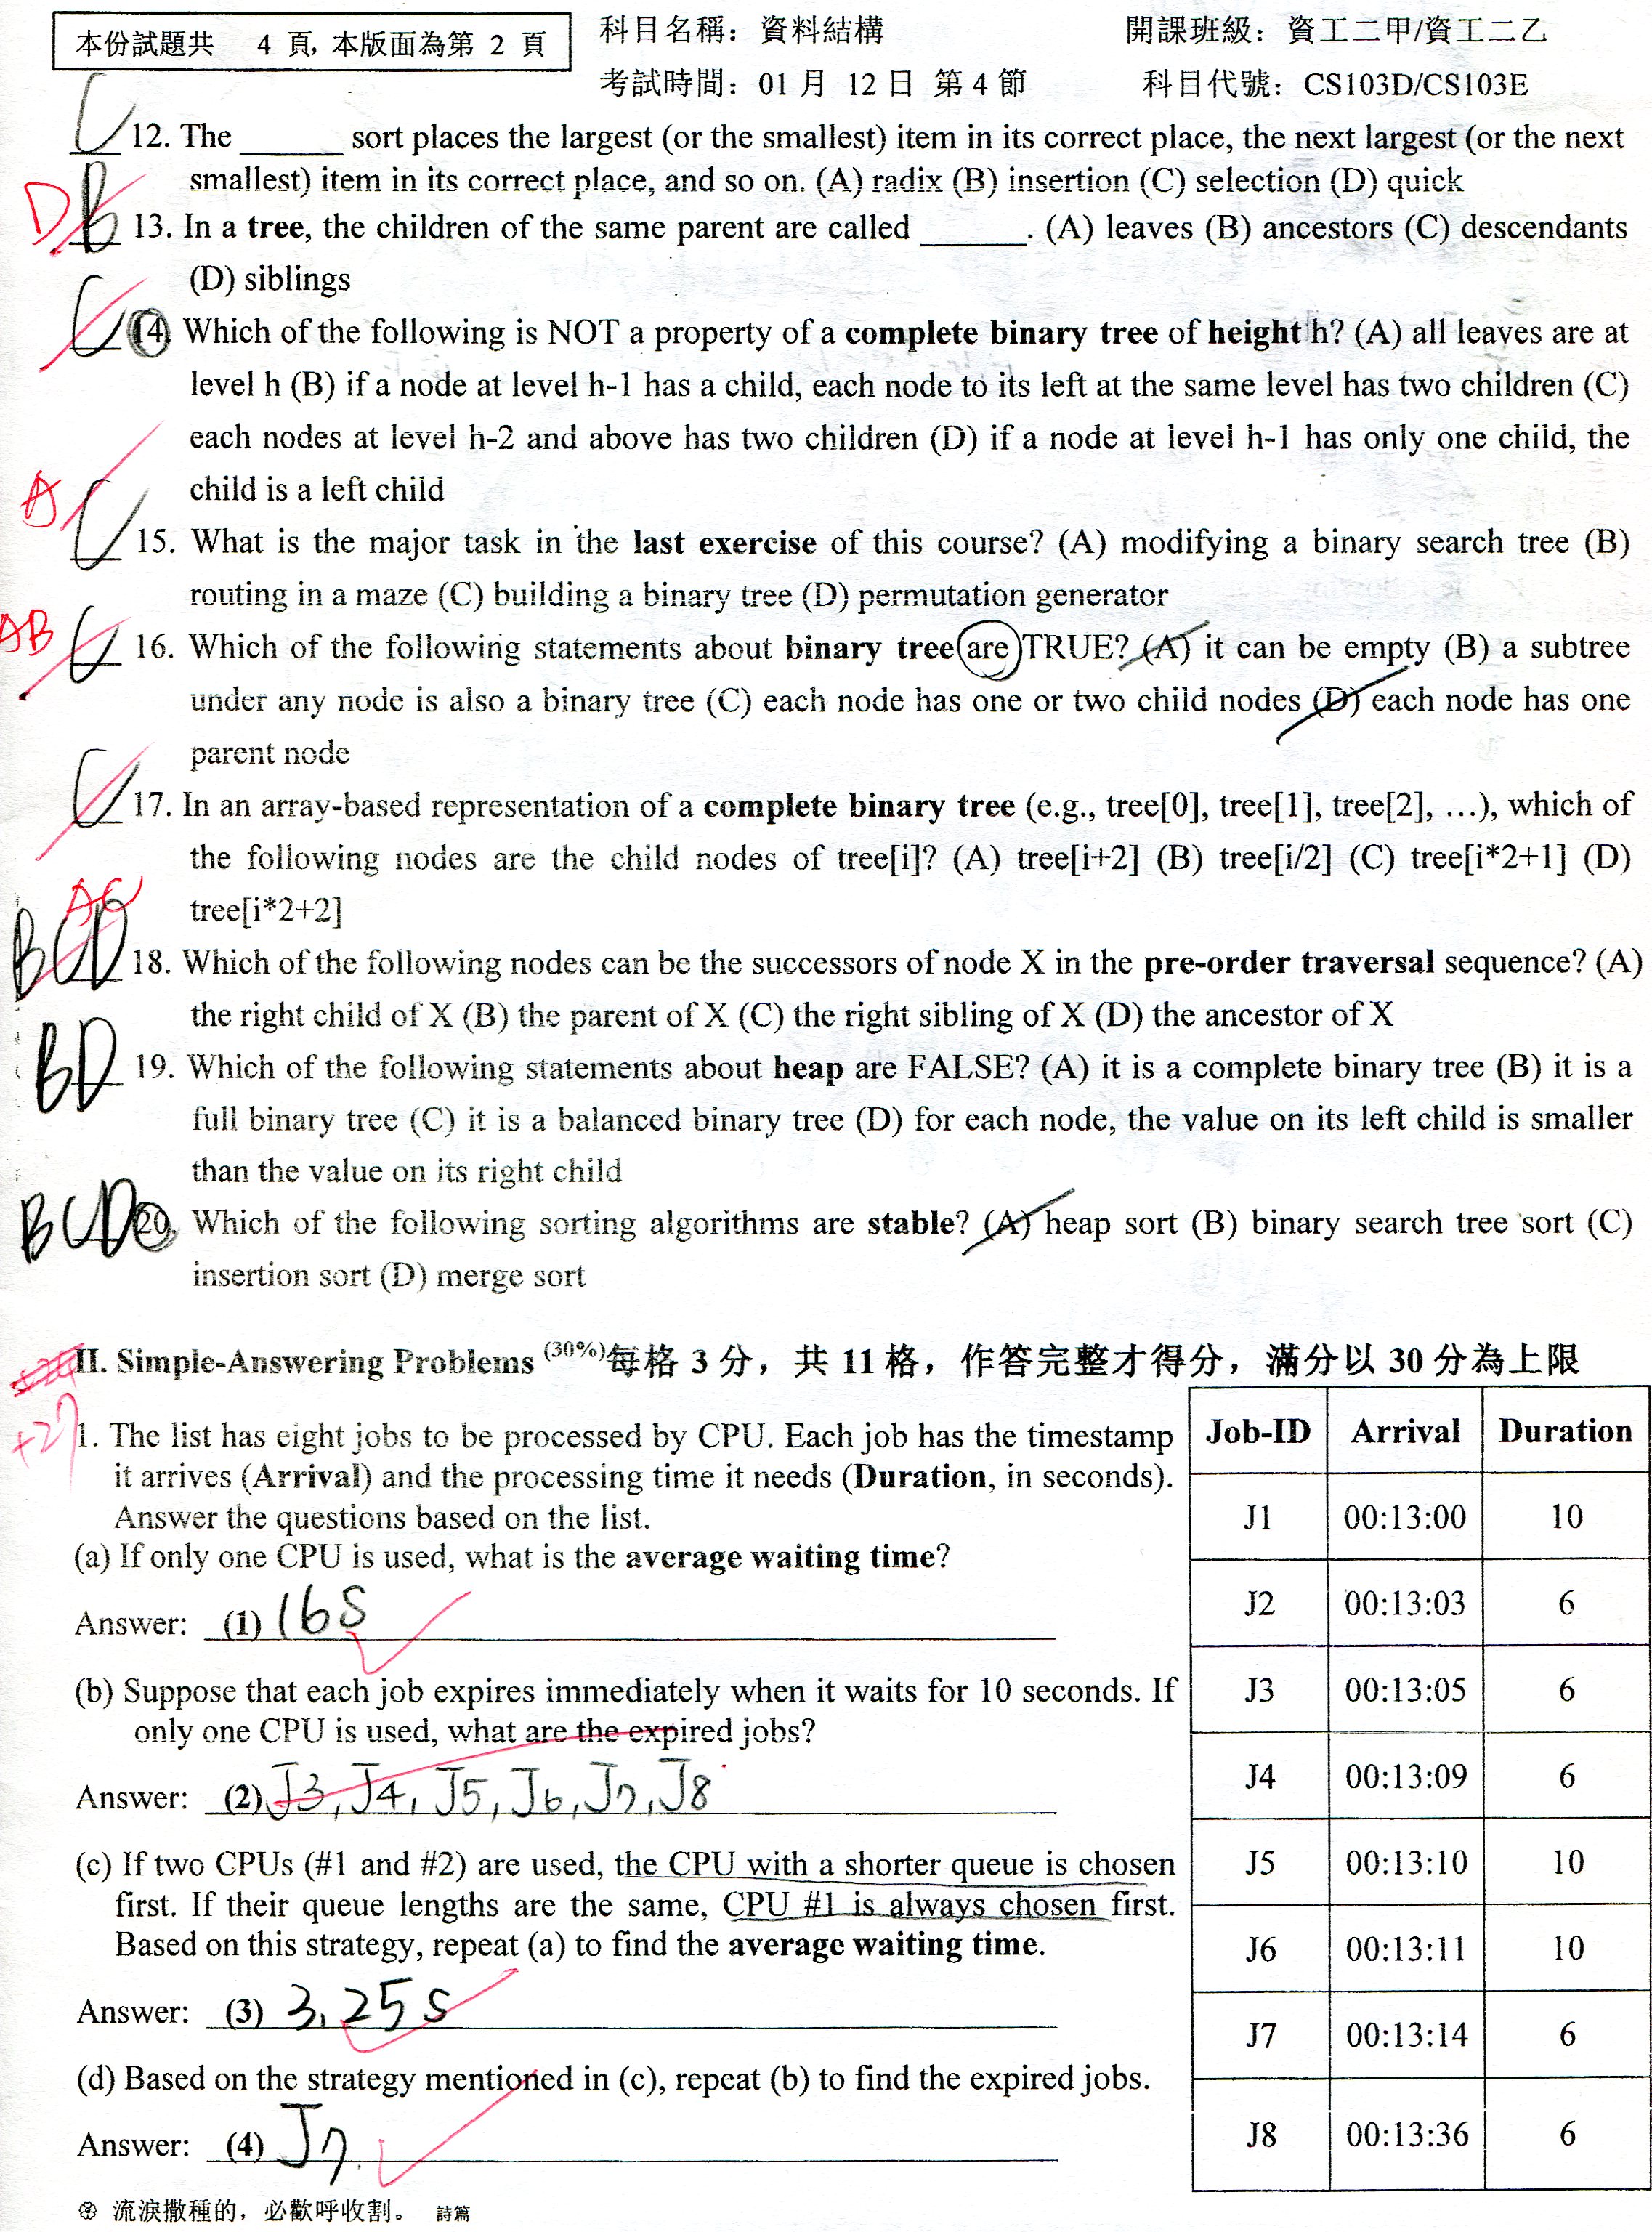 本份試題共 4 頁, 本版面為第 2 頁
科目名稱：資料結構
開課班級：資工二甲/資工二乙
考試時間：01 月 12 日 第 4 節
科目代號：CS103D/CS103E
C 12. The ______ sort places the largest (or the smallest) item in its correct place, the next largest (or the next
smallest) item in its correct place, and so on. (A) radix (B) insertion (C) selection (D) quick
D B 13. In a tree, the children of the same parent are called ______. (A) leaves (B) ancestors (C) descendants
(D) siblings
C 14. Which of the following is NOT a property of a complete binary tree of height h? (A) all leaves are at
level h (B) if a node at level h-1 has a child, each node to its left at the same level has two children (C)
each nodes at level h-2 and above has two children (D) if a node at level h-1 has only one child, the
child is a left child
A C 15. What is the major task in the last exercise of this course? (A) modifying a binary search tree (B)
routing in a maze (C) building a binary tree (D) permutation generator
AB C 16. Which of the following statements about binary tree are TRUE? (A) it can be empty (B) a subtree
under any node is also a binary tree (C) each node has one or two child nodes (D) each node has one
parent node
C 17. In an array-based representation of a complete binary tree (e.g., tree[0], tree[1], tree[2], …), which of
the following nodes are the child nodes of tree[i]? (A) tree[i+2] (B) tree[i/2] (C) tree[i*2+1] (D)
tree[i*2+2]
AC
BCD 18. Which of the following nodes can be the successors of node X in the pre-order traversal sequence? (A)
the right child of X (B) the parent of X (C) the right sibling of X (D) the ancestor of X
BD 19. Which of the following statements about heap are FALSE? (A) it is a complete binary tree (B) it is a
full binary tree (C) it is a balanced binary tree (D) for each node, the value on its left child is smaller
than the value on its right child
BCD 20. Which of the following sorting algorithms are stable? (A) heap sort (B) binary search tree sort (C)
insertion sort (D) merge sort
II. Simple-Answering Problems (30%)每格 3 分，共 11 格，作答完整才得分，滿分以 30 分為上限
+27
1. The list has eight jobs to be processed by CPU. Each job has the timestamp
it arrives (Arrival) and the processing time it needs (Duration, in seconds).
Answer the questions based on the list.
(a) If only one CPU is used, what is the average waiting time?
Answer: (1) 16s
(b) Suppose that each job expires immediately when it waits for 10 seconds. If
only one CPU is used, what are the expired jobs?
Answer: (2) J3, J4, J5, J6, J7, J8
(c) If two CPUs (#1 and #2) are used, the CPU with a shorter queue is chosen
first. If their queue lengths are the same, CPU #1 is always chosen first.
Based on this strategy, repeat (a) to find the average waiting time.
Answer: (3) 3.25s
(d) Based on the strategy mentioned in (c), repeat (b) to find the expired jobs.
Answer: (4) J7
Job-ID Arrival Duration
J1 00:13:00 10
J2 00:13:03 6
J3 00:13:05 6
J4 00:13:09 6
J5 00:13:10 10
J6 00:13:11 10
J7 00:13:14 6
J8 00:13:36 6
流淚撒種的，必歡呼收割。 詩篇